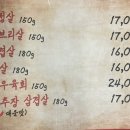 살 150g 17,0
브리살 150g 17,0
겹살 160g 16,0
살 180g 16,0
우육회 150g 24,0
추장 삼겹살 180g 17,0